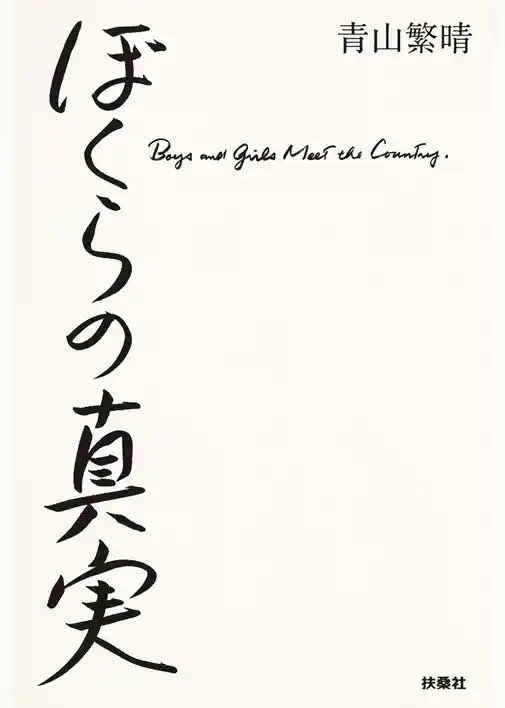 青山繁晴
ぼくらの真実
Boys and Girls Meet the Country.
扶桑社